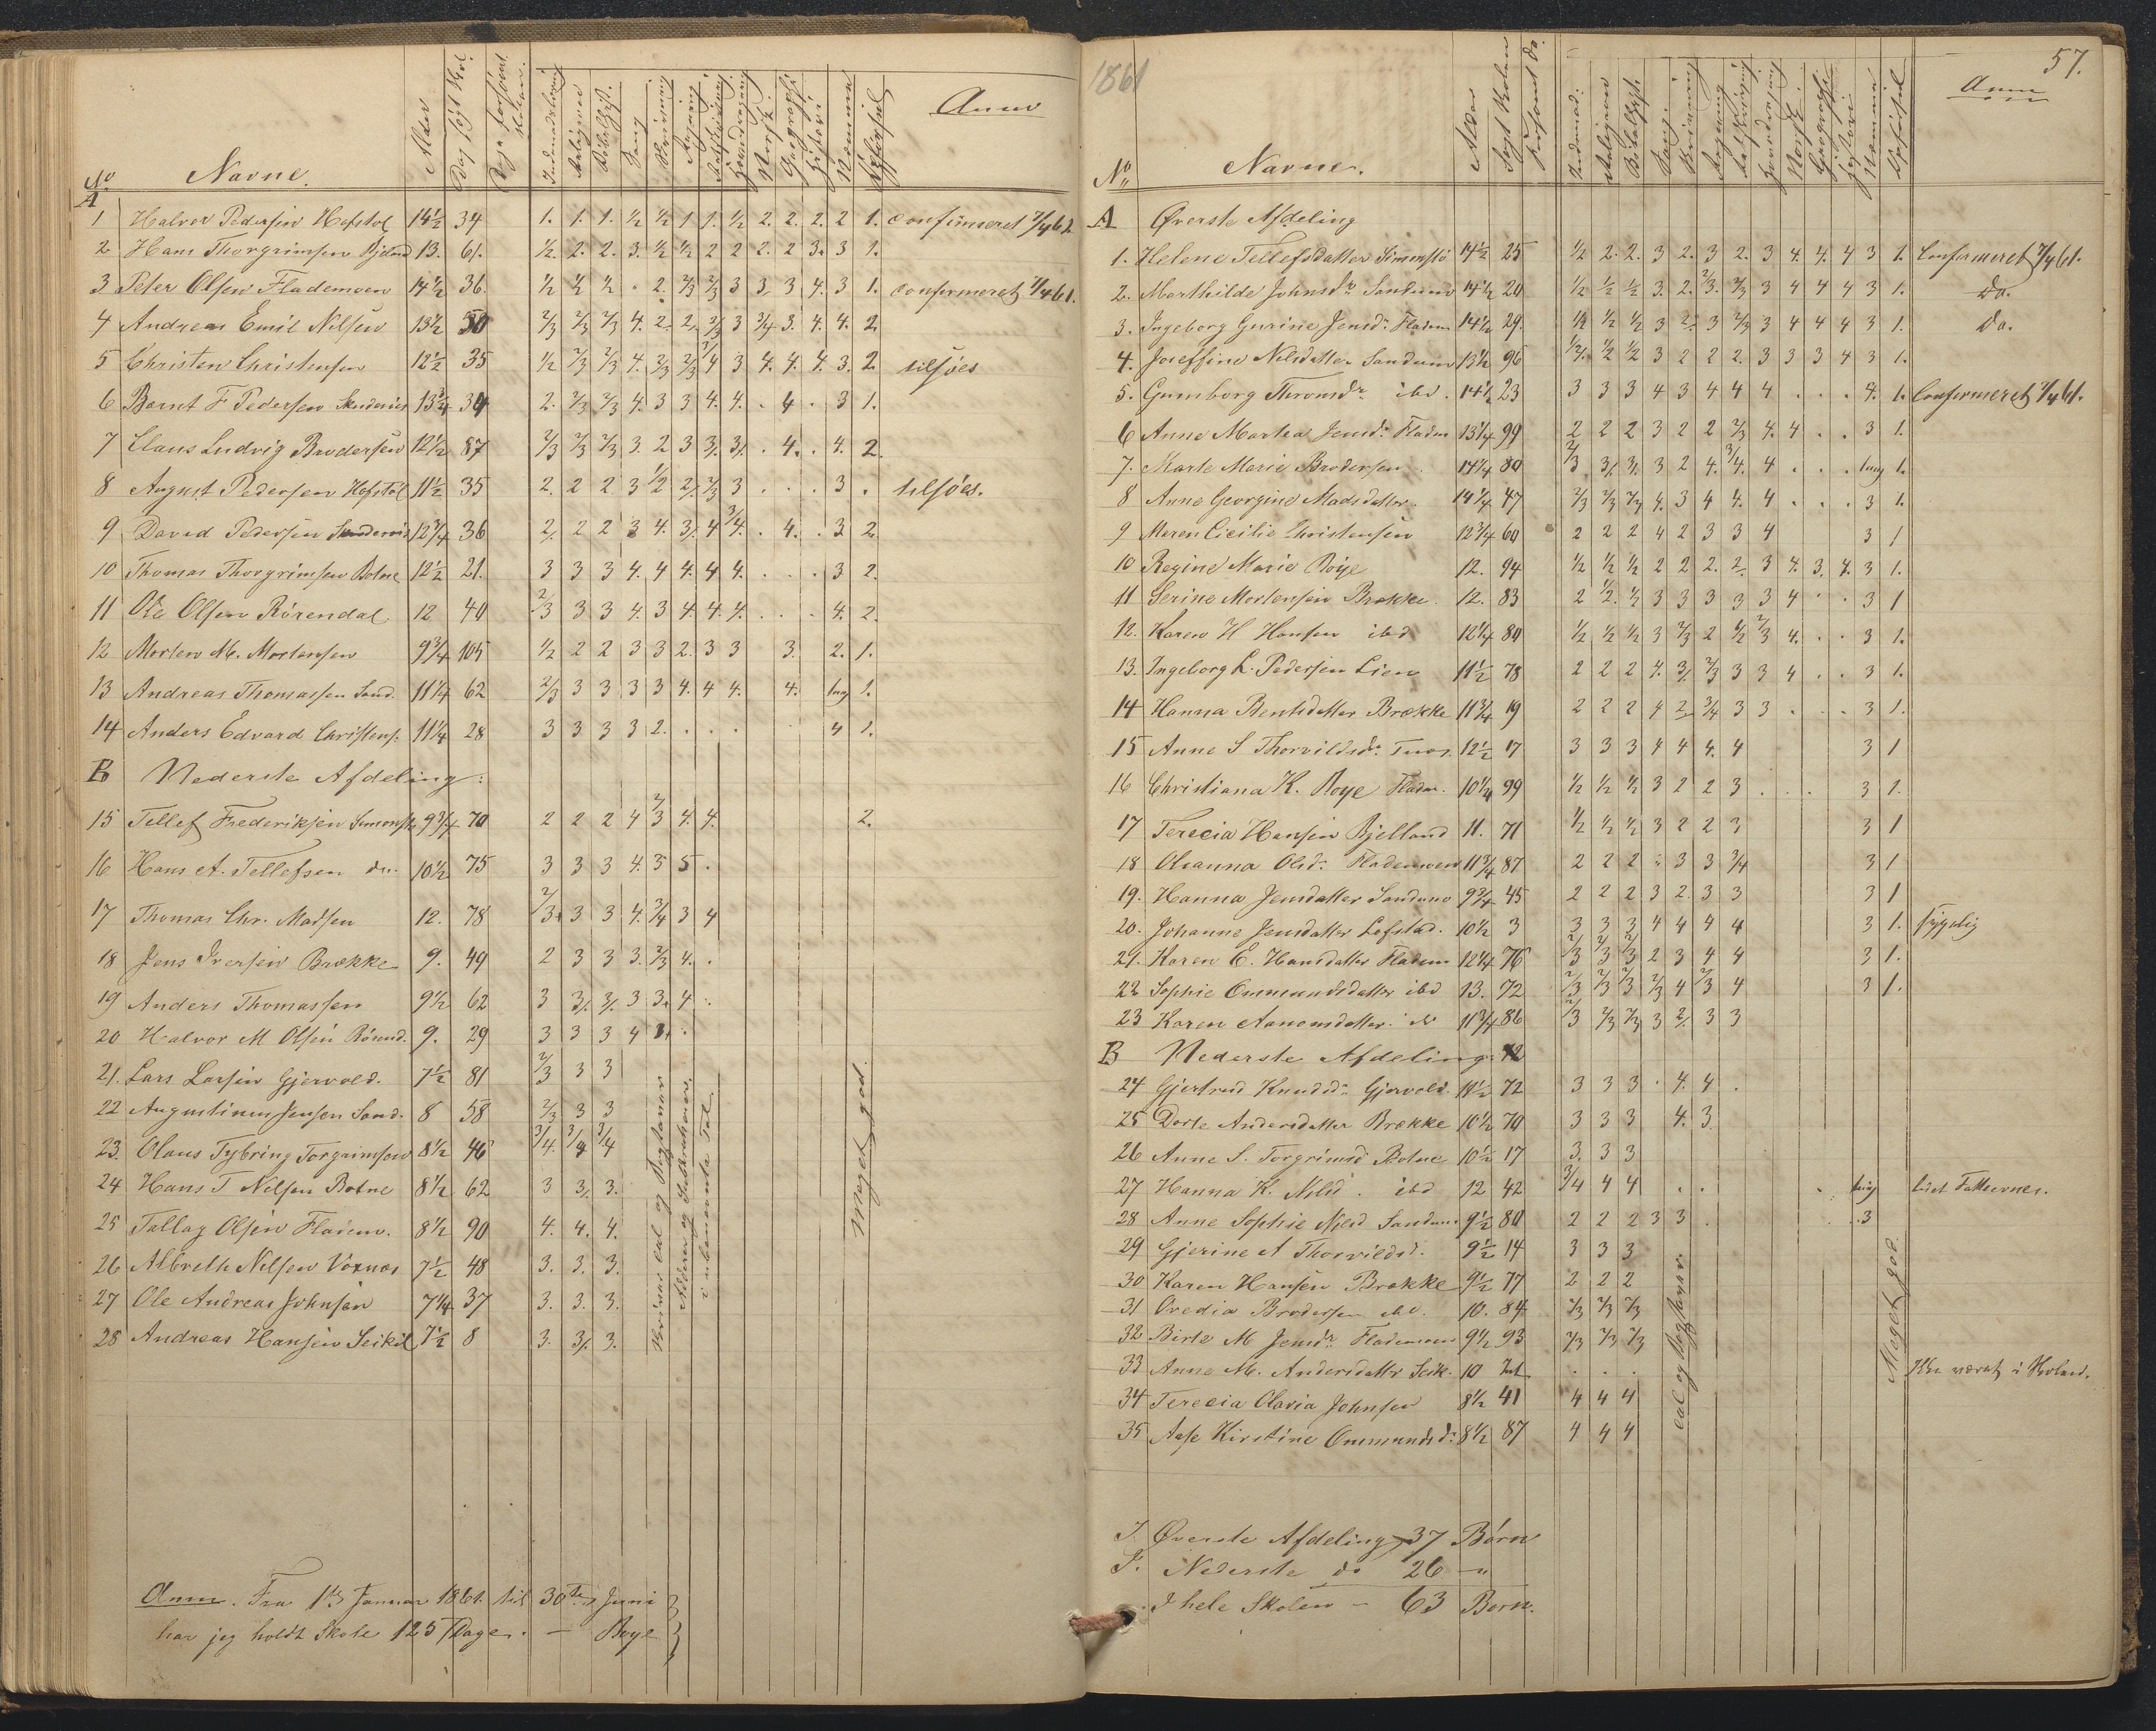 No Navne. Alder Dag søgt Skol. Dage forsømt Skolen. Indenadslæsning Religion Bibelhist. Sang Skrivning Regning Retskrivning Norsk Geographi Historie Nemme Opførsel Anm
A
1 Halvor Pedersen Hefstol 14½ 34 1. 1. 1. ½ ½ 1 1. ½ 2. 2. 2. 2 1. confirmeret 7/4 62
2 Hans Thorgrimsen Bjelland 13. 61. ½. 2. 2. 3. ½ ½ 2 2 2. 2 3. 3 1.
3 Peter Olsen Flademoen 14½ 36. ½ ½ ½ . 2. 2/3 2/3 3 3 3 4. 3 1. confirmeret 7/4 61.
4 Andreas Emil Nilsen 13½ 50 2/3 2/3 2/3 4. 2. 2. 2/3 3 3/4 3. 4. 4. 2.
5 Christen Christensen 12½ 35 ½ 2/3 2/3 4. 2/3 2/3 3/4 3 4. 4. 4. 3. 2. tilføes
6 Bernt F Pedersen 13¾ 34 2. 2/3 2/3 4. 3 3 4. 4. . 4 . 3 1.
7 Claus Ludvig Brodersen 12½ 87 2/3 2/3 2/3 3. 2 3 3. 3. . 4. . 4. 2.
8 August Pedersen Hefstøl 11½ 35 2. 2 2 3 ½ 2. 2/3 3 . . . 3 . tilføes.
9 David Pedersen 12¼ 36 2. 2 2 3 4. 3. 4 3/4. . 4. . 3 2.
10 Thomas Thorgrimsen Botne 12½ 21. 3 3 3 4. 4 4. 4 4. . . . 3 2.
11 Ole Olsen Rørendal 12 40 2/3 3 3 4. 3 4. 4. 4. . . . 4. 2.
12 Morten M. Mortensen 9¾ 105 ½ 2 2 3 3 2. 3 3 3. 2. 1.
13 Andreas Thomassen Sand. 11¼ 62 2/3 3 3 3 3 4. 4 4. 4. 1.
14 Anders Edvard Christens. 11¼ 28 3 3 3 3 2. . . . 4 1.
B Nederste Afdeling:
15 Tellef Frederiksen 9¾ 70 2 2 2 4 2/3 4. 4. 2.
16 Hans A. Tellefsen do. 10½ 75 3 3 3 4. 5 5 .
17 Thomas Chr. Madsen 12. 78 2/3 3 3 4. 3/4 3 4
18 Jens Iversen Brække 9. 49 2 3 3 3. 2/3 4. .
19 Anders Thomassen 9½ 62 3 3. 3. 3 3. 4 .
20 Halvor M Olsen Rørend. 9. 29 3 3 3 4 . .
21. Lars Larsen Gjervold. 7½ 81 2/3 3 3
22 Augustinus Jensen Sand. 8 58 2/3 3 3
23. Olaus Tybring Torgrimsen 8½ 46 3/4. 3/4 3/4
24 Hans T Nilsen Botne 8½ 62 3 3. 3.
25 Tallag Olsen Fladem. 8½ 90 4. 4. 4.
26 Albreth Nilsen Voxnæs 7½ 48 3. 3. 3.
27 Ole Andreas Johnsen 7¼ 37 3. 3. 3.
28 Andreas Hansen Seikil 7½ 8 3. 3. 3.
Skrive Tal og Bogstaver
Addere og Subtrahere
i ubenævnte Tal
Meget god.
Anm. Fra 1te Januar 1861 til 30te Juni
har jeg holdt Skole 125 Dage. — Boye
1861 57.
No Navne. Alder Søgt Skolen forsømt do. Indenad. Religion Bibelhist. Sang Skrivning Regning Retskrivning Norsk Geographi Historie Nemme Opførsel Anm
A Øverste Afdeling
1. Helene Tellefsdatter Simmstø 14½ 25 ½ 2. 2. 3 2. 3 2. 3 4. 4. 4 3 1. Confirmeret 7/4 61.
2. Marthilde Johnsdr Sandum 14½ 20 ½ ½ ½ 3. 2. 2/3. 2/3 3 4 4 4 3 1. do.
3. Ingeborg Gurine Jensdr Fladem 14½ 29. ½ ½ ½ 3 2. 3 2/3 3 4 4 4 3 1. do.
4. Joseffine Nilsdatter Sandum 13½ 96 ½. ½ ½ 3 2 2 2. 3 3 3 4 3 1.
5. Gunnborg Thronsdr ibd. 14½ 23 3 3 3 4 3 4 4 4 . . . 4. 1. Confirmeret 7/4 61.
6 Anne Martea Jensdr Fladm 13¼ 99 2 2 2 3 2 2 2/3 4. 4 . . 3 1.
7. Marte Marie Brodersen 14¼ 80 2/3 3. 3. 3 2 4. 3/4. 4 . . . 1.
8 Anne Georgine Madsdatter 14¼ 47 2/3 2/3 2/3 4. 3 4 4. 4 . . . 3 1.
9 Maren Cicilie Christensen 12¾ 60 2 2 2 4 2 3 3 4 3 1
10 Regine Marie Boye 12. 94 ½ ½ ½ 2 2 2. 2. 3 4. 3. 4. 3 1.
11 Serine Mortensen Brække. 12. 83 2 ½. ½ 3 3 3 3 3 4 . . 3 1
12. Karen H Hansen ibd 12¼ 80 ½ ½ ½ 3 2/3 2 ½ 2/3 4. . . 3 1.
13. Ingeborg L. Pedersen Lien 11½ 78 2 2 2 4. 3. 2/3 3 3 4 . . 3 1.
14 Hanna Bentsdatter Brække 11¾ 19 2 2 2 4 2. 3/4 3 3 . . . 3 1.
15 Anne S Thorvildsdr 12½ 17 3 3 3 4 4 4. 4 3 1
16 Christiana K. Boye Fladm. 10¼ 99 ½ ½ ½ 3 2 2 3 . . . 3 1.
17 Terecia Hansen Bjelland 11. 71 ½ ½ ½ 3 2 2 3 3 1
18 Olsanna Olsdr Flademoen 11¾ 87 2 2 2 . 3 3 3/4 3 1
19. Hanna Jensdatter Sandum 9¾ 45 2 2 2 3 2. 3 3 3 1
20. Johanne Jensdatter Lofstad. 10½ 3 3 3 3 4 4 4 4 3 1. sygelig
21. Karen E. Hansdatter Fladem 12¼ 76 2/3 2/3 2/3 2 3 4 4 3 1.
22 Sophie Ommundsdatter ibd 13. 72 2/3 2/3 2/3 2/3 4 2/3 4 3 1.
23 Karen Aanonsdatter. do 11¾ 86 2/3 2/3 2/3 3 2. 3 3
B Nederste Afdeling
24 Gjertrud Knudsdr Gjervold. 11½ 72 3 3 3 . 4. 4 .
25 Dorte Andersdatter Brække 10½ 70 3 3 3 4. 3.
26 Anne S. Torgrimsd Botne 10½ 17 3. 3 3
27 Hanna K. Nilsd. ibd 12 42 3/4 4 4 . . .
28 Anne Sophie Nilsd Sandum 9½ 80 2 2 2 3 3 . . . 3
29 Gjerine A Thorvildsd. 9½ 14 3 3 3
30 Karen Hansen Brække 9½ 77 2 2 2
31 Ovedia Brodersen ibd. 10. 84 2/3 2/3 2/3
32 Birte M Jensdr Flademoen 9½ 93 2/3 2/3 2/3
33 Anne M. Andersdatter Seik. 10 Int . . . Ikke været i Skolen.
34 Terecia Olavia Johnsen 8½ 41 4 4 4
35 Aase Kirstine Ommundsdr 8½ 87 4 4 4
Tal og Bogstaver
Meget god.
I Øverste Afdeling 37 Børn
I. Nederste do 26 "
I hele Skolen – 63 Børn.